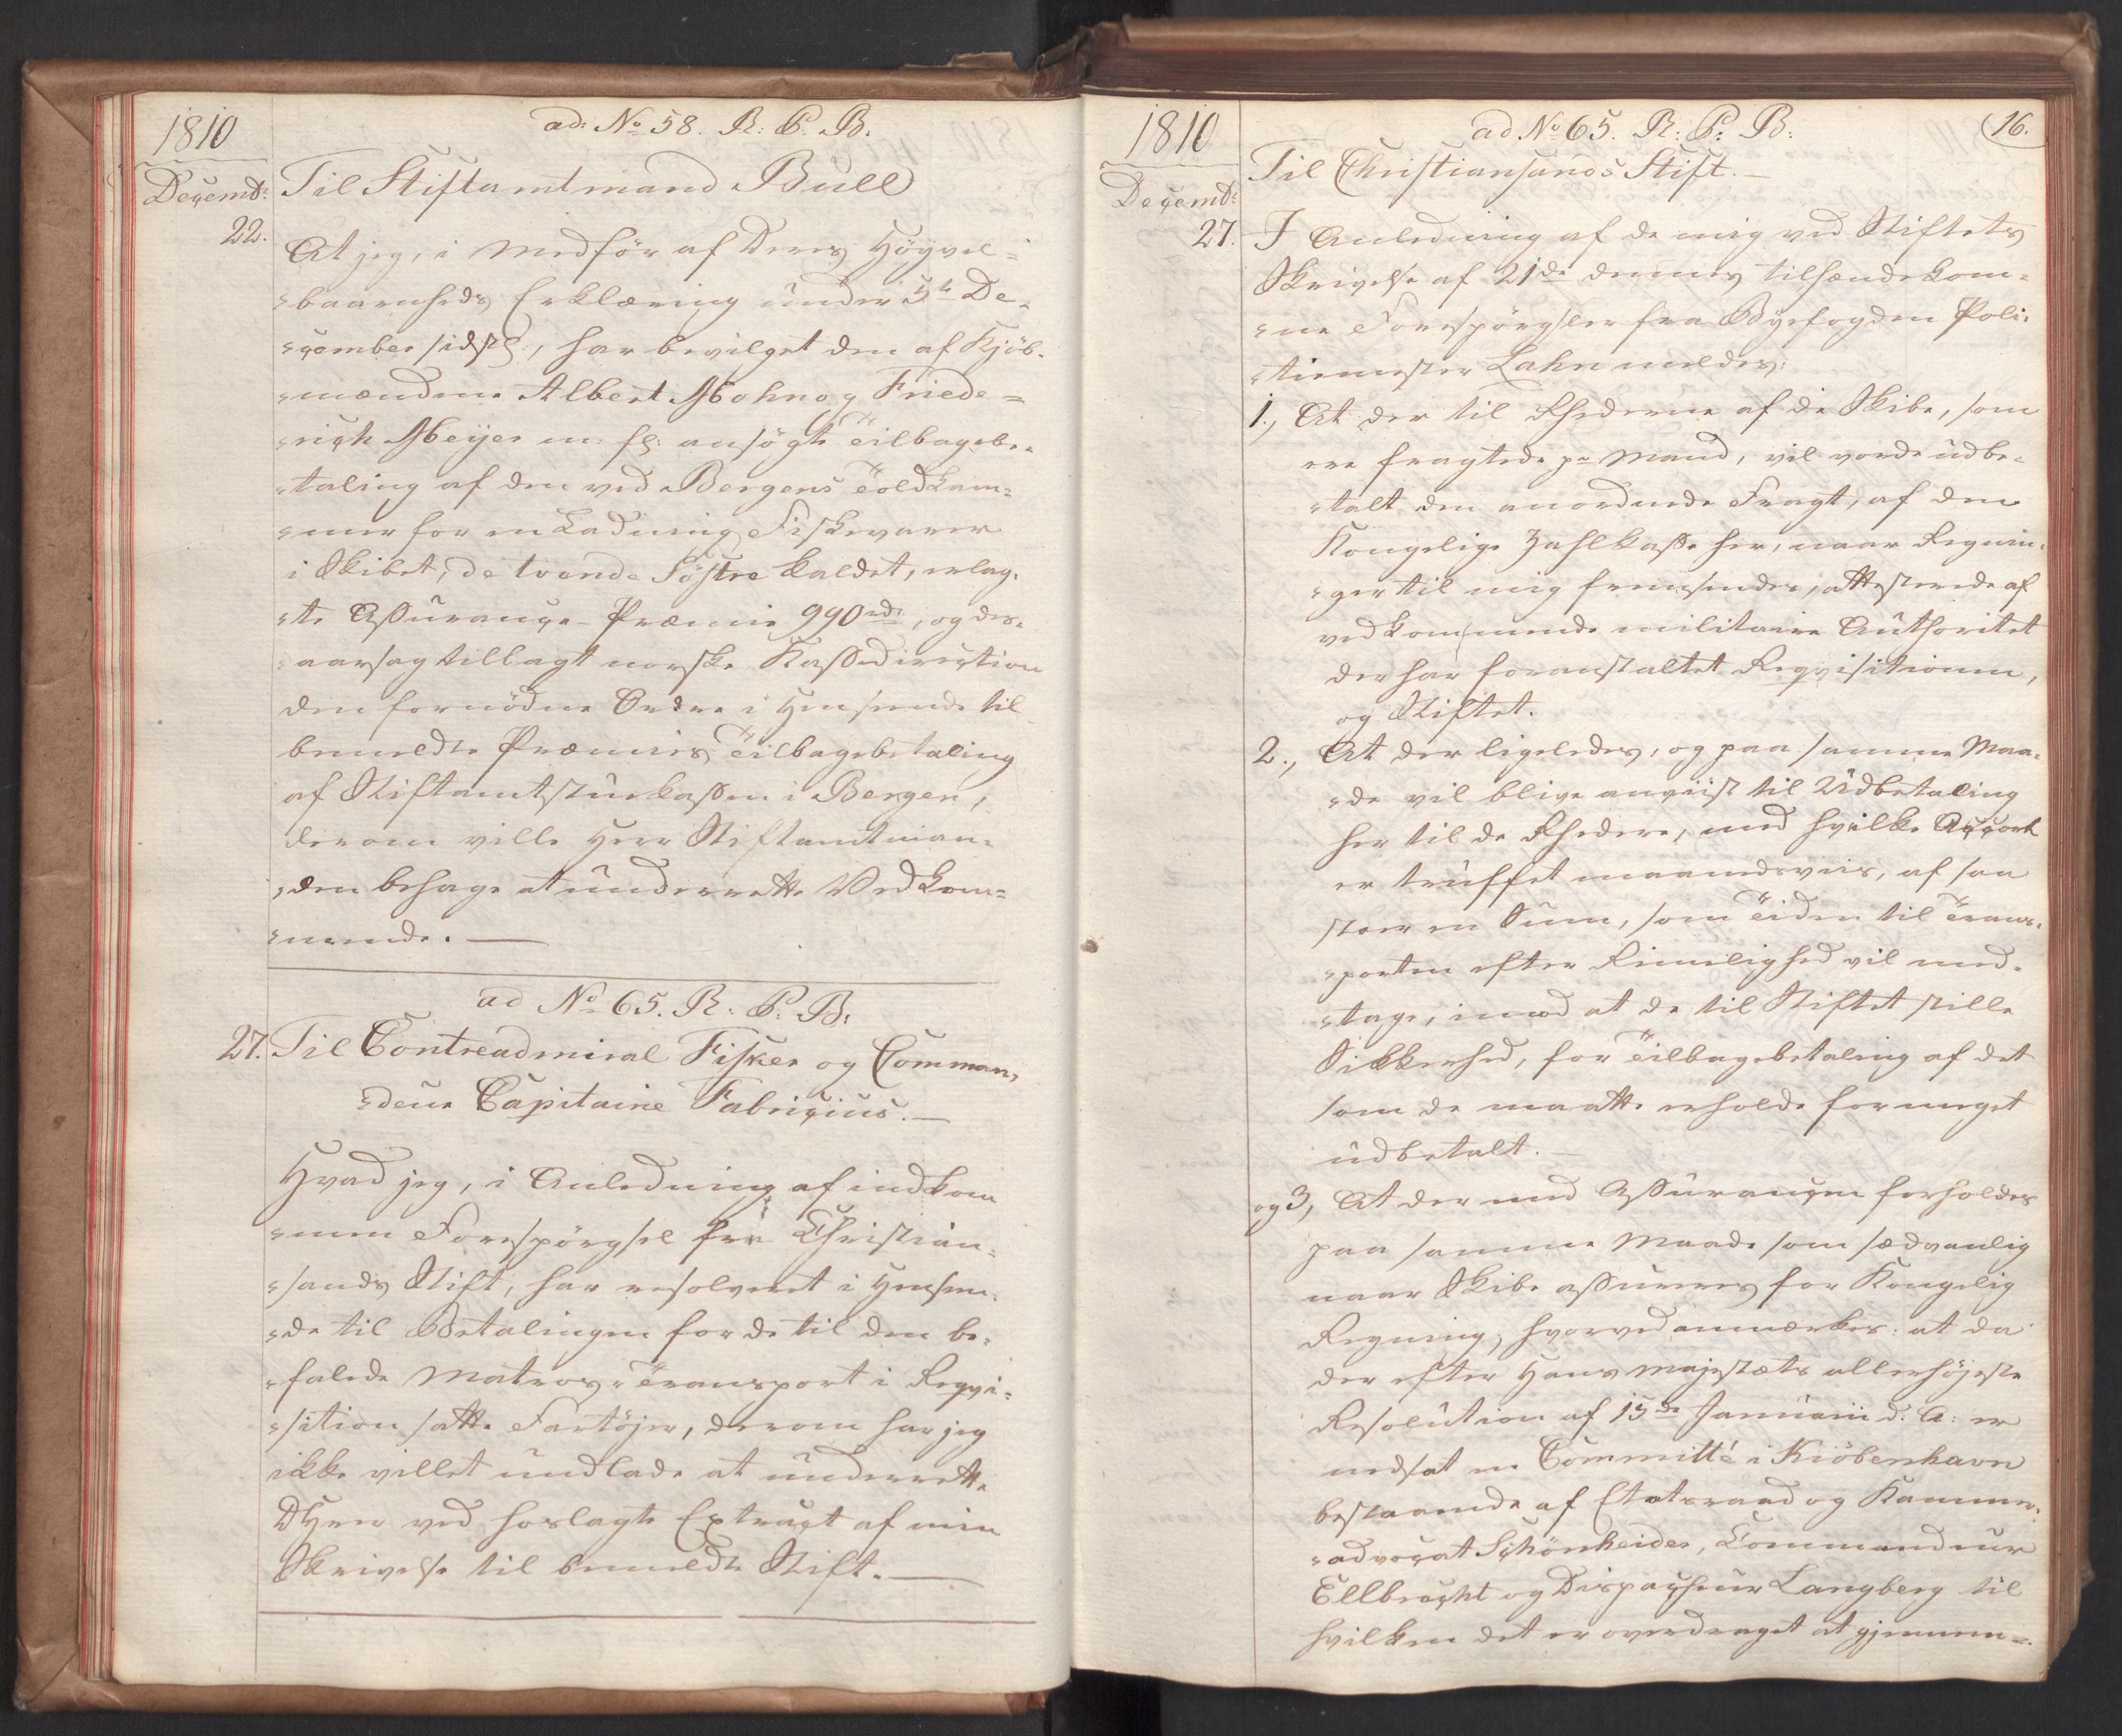 1810
ad: No 58. R: P. B:
Decembr: Til Stiftamtmand Bull
22.
At jeg, i Medför af Deres Höyvel-
baarenheds Erklæring under 5te De-
cember sidstl:, har bevilget den af Kjöb-
mændene Albert Mohn og Friede-
rich Meijer m: fl: ansögte Tilbagebe-
taling af den ved Bergens Toldkam-
mer for en Ladning Fiskevarer
i Skibet, de tvende Söstre kaldet, erlag-
te Assurance-Præmie 990 rdr, og des-
aarsag tillagt norske Kassedirection
den fornödne Ordre i Henseende til
bemeldte Præmies Tilbagebetaling
af Stiftamtstuekassen i Bergen,
derom ville Herr Stiftamtman-
den behage at underrette Vedkom-
mende. —
ad No 65. R: P. B:
27. Til Contreadmiral Fisker og Comman-
deur Capitaine Fabricius. —
Hvad jeg, i Anledning af indkom
men Forespörgsel fra Christian-
sands Stift, har resolveret i Hensen-
de til Betalingen for de til den be-
falede Matros-Transport i Reqvi-
sition satte Fartöjer, derom har jeg
ikke villet undlade at underrette
DHrr ved hoslagte Extract af min
Skrivelse til bemeldte Stift. —
1810
ad No 65. R: P: B:
16.
Til Christiansands Stift. —
Decembr:
27. I Anledning af de mig ved Stiftets
Skrivelse af 21de dennes tilsændekom-
ne Forespörgsler fra Byefogden Poli-
tiemester Lahn meldes:
1., At der til Rhederne af de Skibe, som
ere fragtede pr Mand, vil vorde udbe-
talt den anordnede Fragt, af den
Kongelige Zahlkasse her, naar Regnin-
ger til mig fremsendes, attesterede af
vedkommende militaire Authoritet
der har foranstaltet Reqvisitionen,
og Stiftet.
2., At der ligeledes, og paa samme Maa-
de vil blive anviist til Udbetaling
her til de Rhedere, med hvilke Accort
er truffet maanedsviis, af saa
stor en Sum, som Tiden til Trans-
porten efter Rimelighed vil med-
tage, imod at de til Stiftet stille
Sikkerhed, for Tilbagebetaling af det
som de maatte erholde for meget
udbetalt. —
og 3, At der med Assurancen forholdes
paa samme Maade som sædvanlig
naar Skibe assureres for Kongelig
Regning, hvorved anmærkes: at da
der efter Hans Majestæts allerhöjeste
Resolution af 15de Januarii d: A: er
nedsat en Committé i Kiöbenhavn
bestaaende af Etatsraad og Kammer-
advocat Schönheider, Commandeur
Ellbracht og Dispacheur Langberg til
hvilken det er overdraget at gjennem-